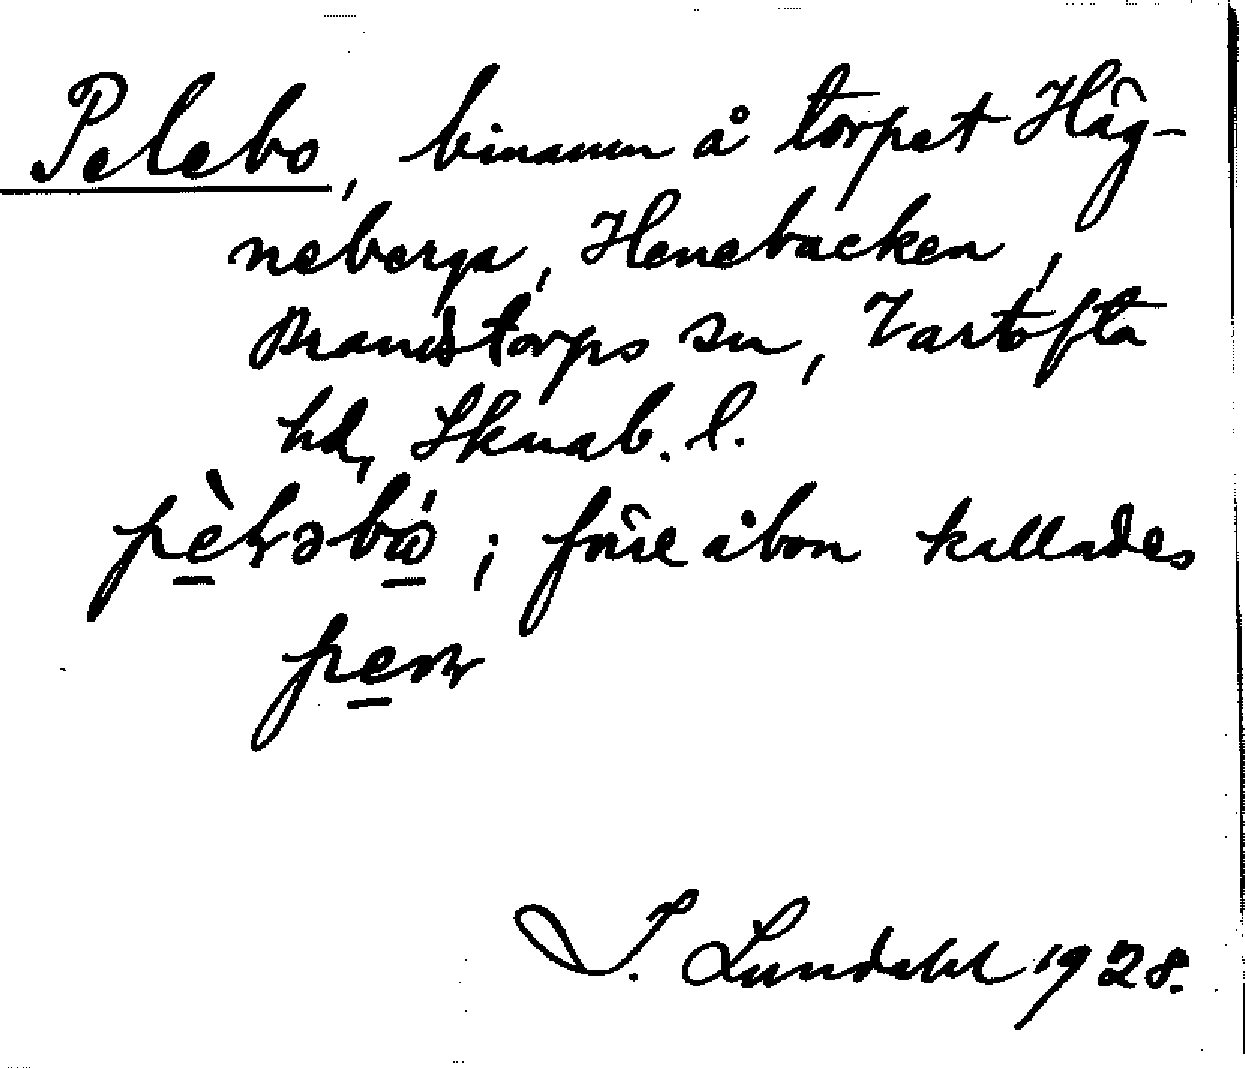 Pelebo, binamn å torpet Häg-
neberga, Henebacken,
Brandstorps sn, Vartofta
hd, Skarab. l.
pèləbó ; förre åbon kallades
I. Lundahl 1928.